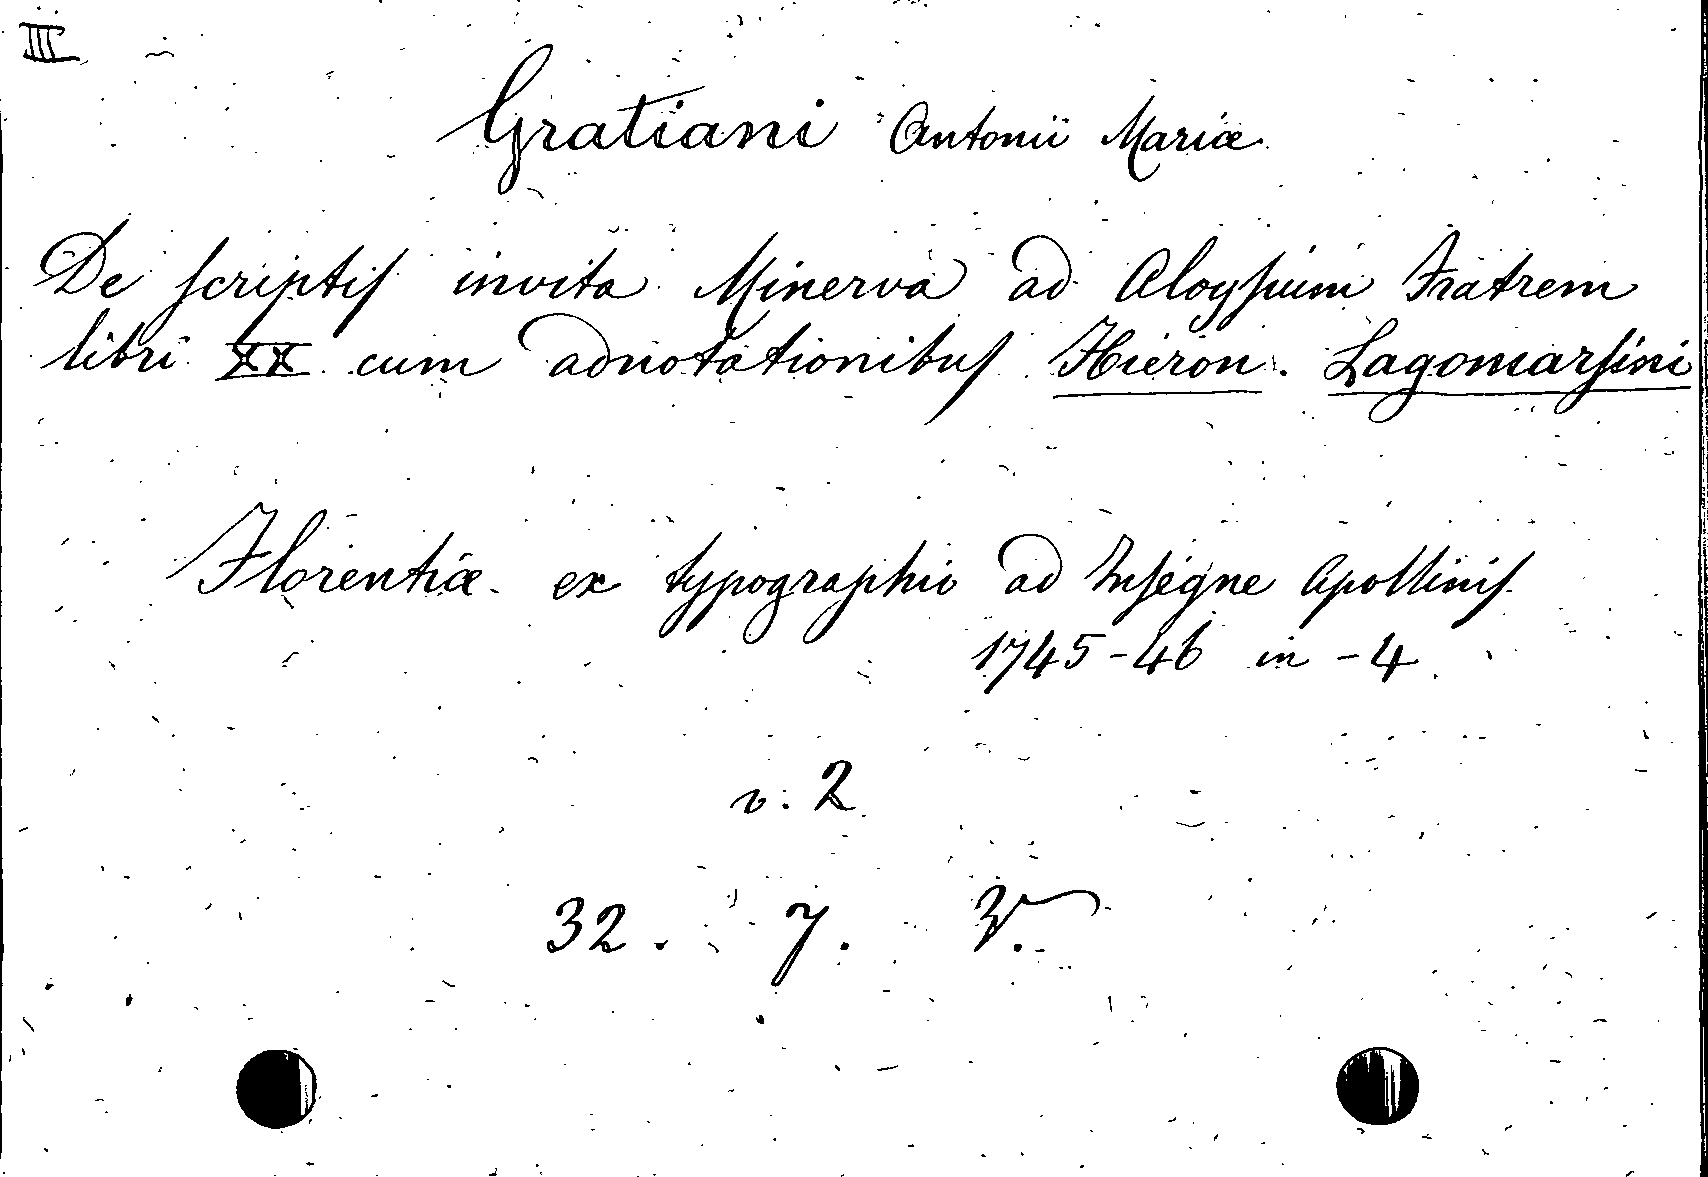 III
Gratiani Antonii Mariæ
De scriptis invita Minerva ad Aloysium Fratrem
libri XX cum adnotationibus Hieron. Lagomarsini
Florentiæ ex typographio ad Insegne Apollinis
1745-46 in-4
v. 2
32. 7. V.